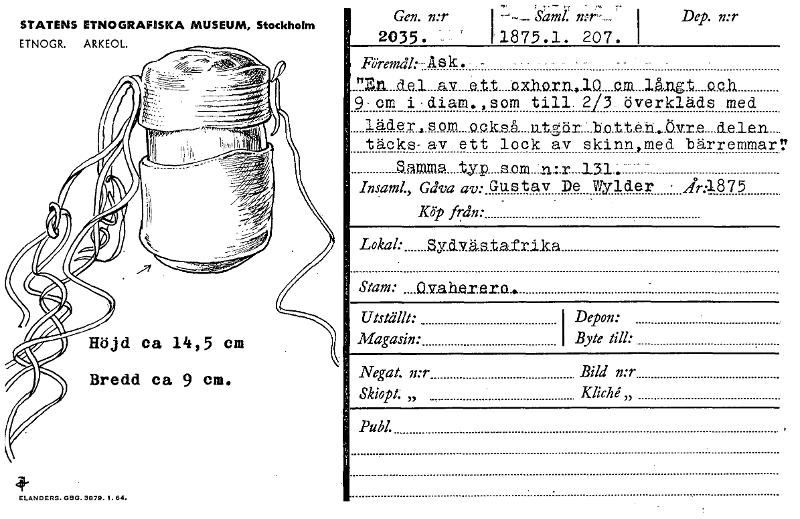 STATENS ETNOGRAFISKA MUSEUM, Stockholm
ETNOGR. ARKEOL.
Höjd ca 14,5 cm
Bredd ca 9 cm.
ELANDERS. GBG. 3879. 1. 64.
Gen. n:r
2035.
Saml. n:r
1875.1. 207.
Dep. n:r
Föremål: Ask.
"En del av ett oxhorn,10 cm långt och
9 cm i diam.,som till 2/3 överkläds med
läder,som också utgör botten.Övre delen
täcks av ett lock av skinn,med bärremmar"
Samma typ som n:r 131.
Insaml., Gåva av: Gustav De Wylder År:1875
Köp från:
Lokal: Sydvästafrika
Stam: Ovaherero.
Utställt: Depon:
Magasin: Byte till:
Negat. n:r Bild n:r
Skiopt. „ Kliché „
Publ.